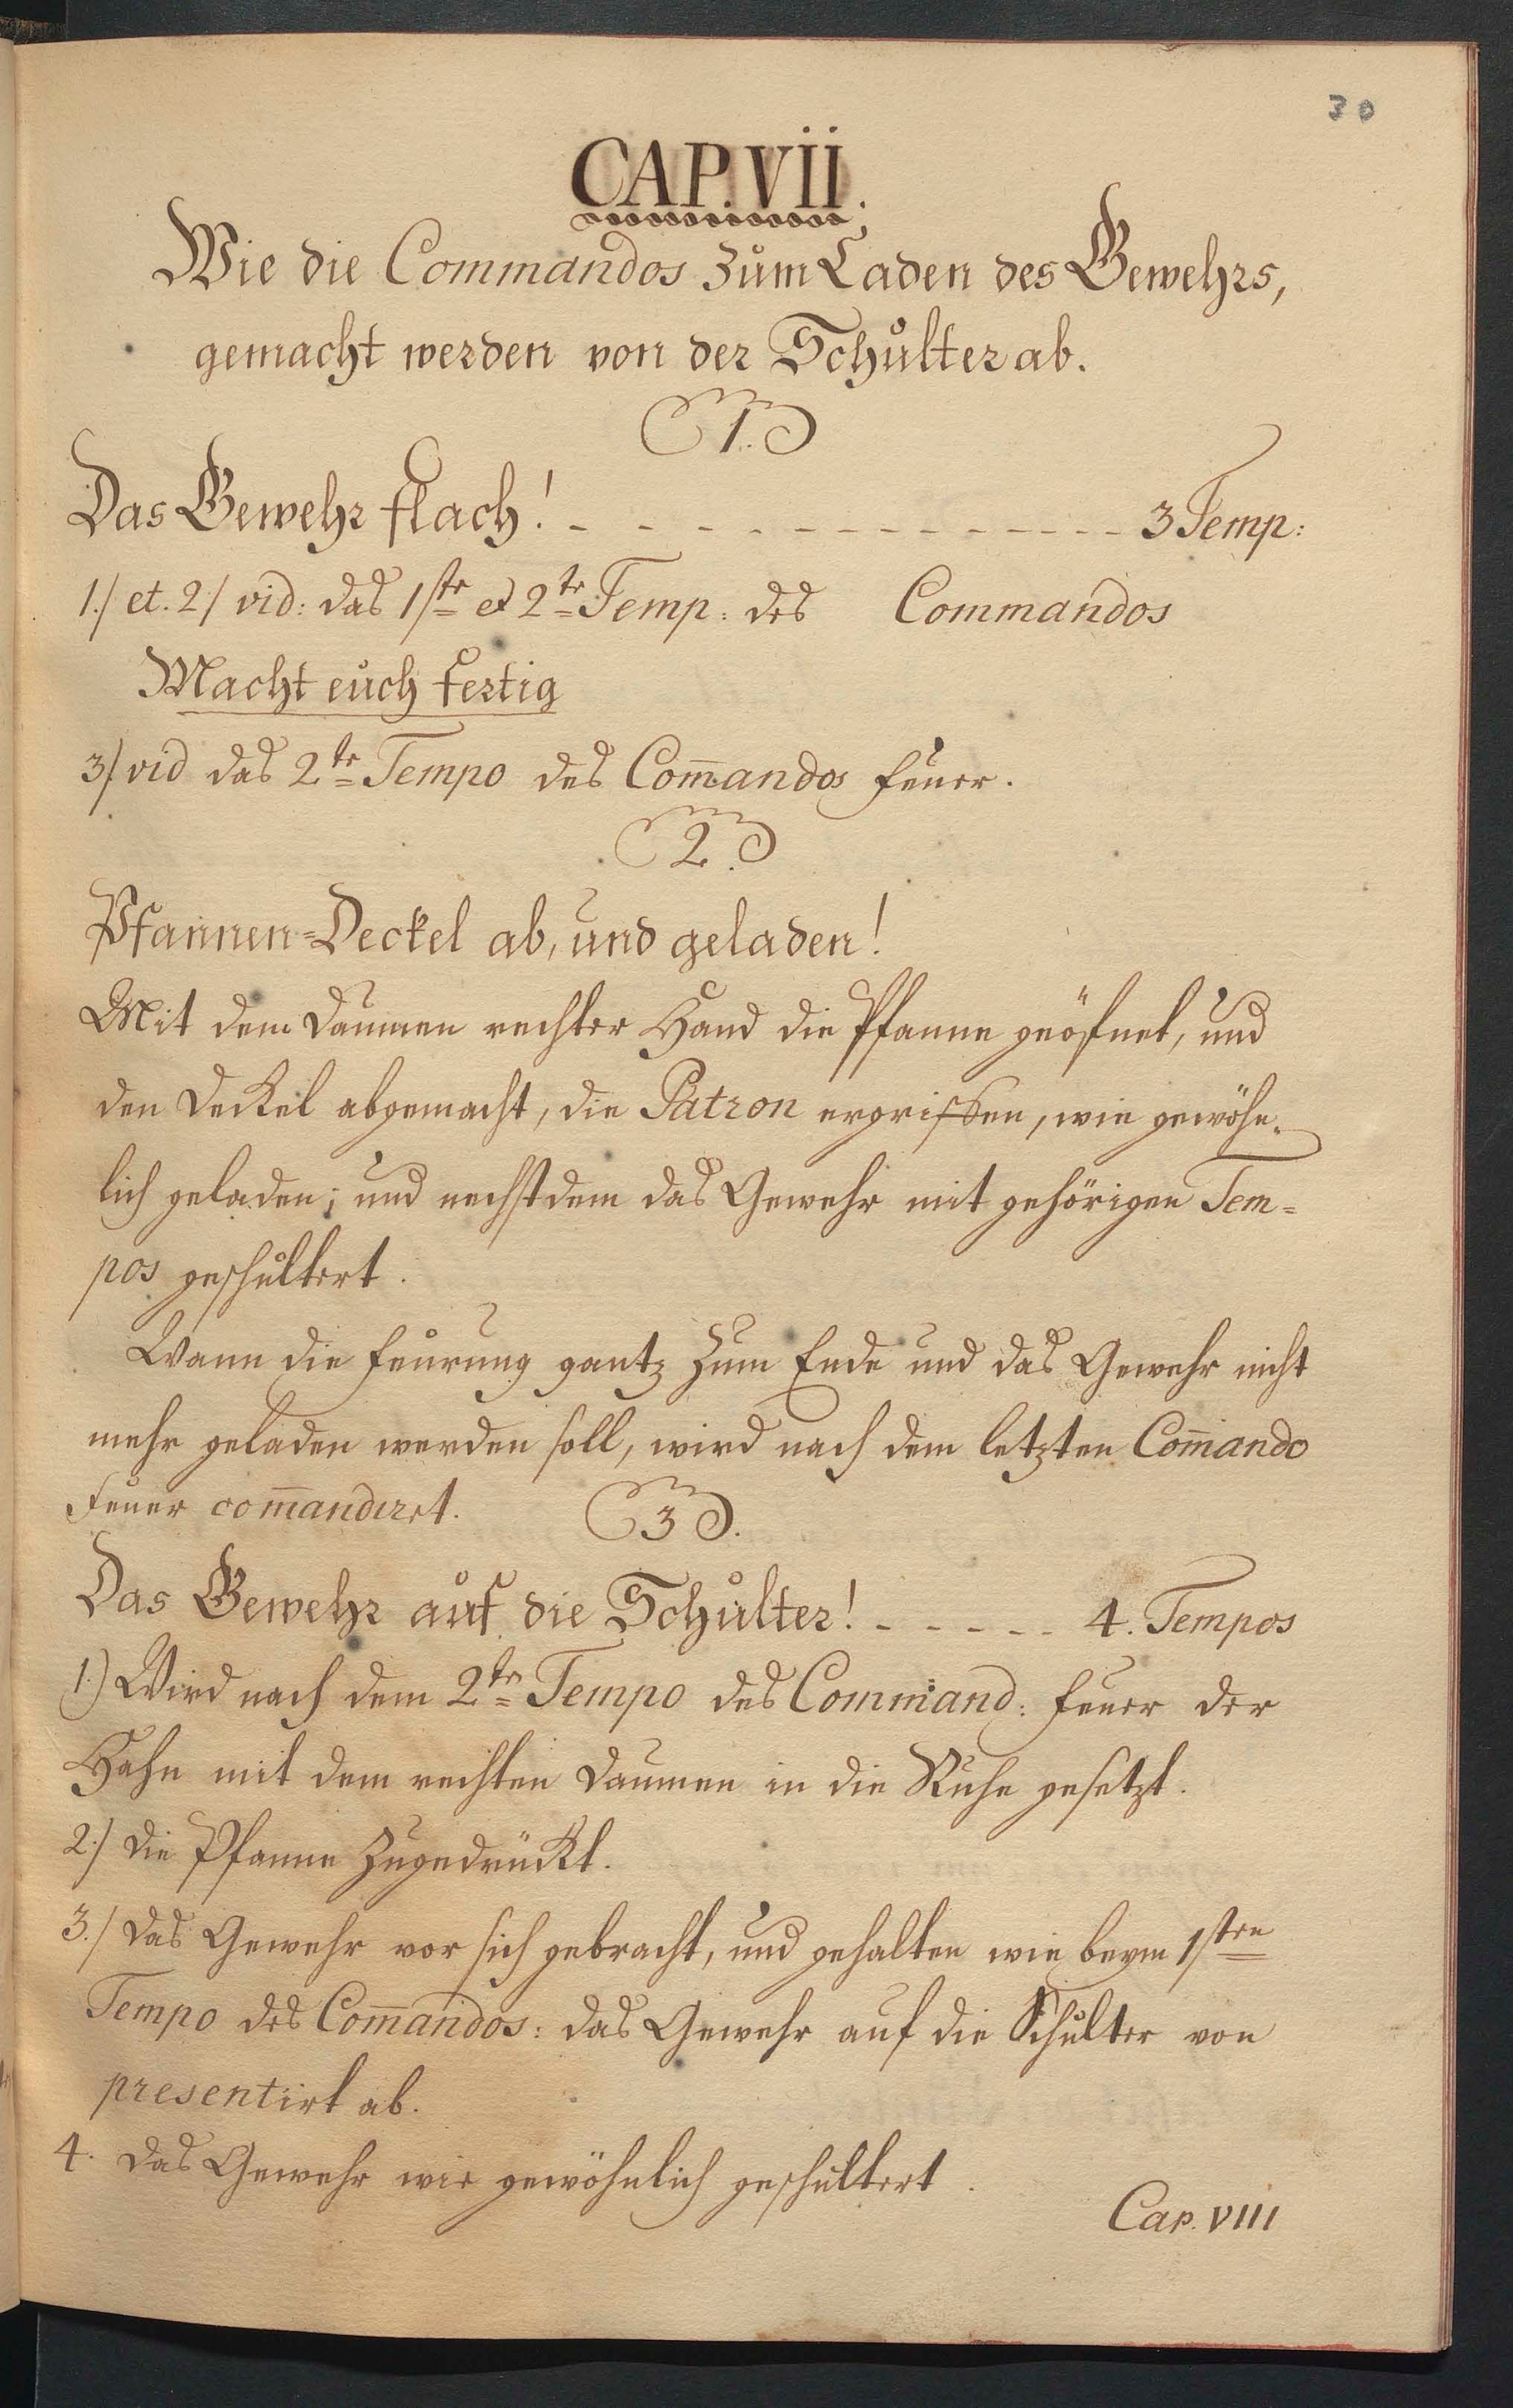 30
CAP. VII.
Wie die Commandos zum Laden des Gewehrs,
gemacht werden von der Schulter ab.
1.
Das Gewehr flach! - - - - - - - - - - - - - - 3 Temp:
1./ et. 2./ vid: das 1ste et 2te Temp: des Commandos
Macht euch fertig
3./ vid das 2te Tempo des Com̄andos Feuer.
2.
Pfannen=Deckel ab, und geladen!
Mit dem Daumen rechter Hand die Pfanne geöfnet, und
den Deckel abgemacht, die Patron ergriffen, wie gewöhn-
lich geladen; und nechstdem das Gewehr mit gehörigen Tem=
pos geschultert.
Wann die Feurung gantz zum Ende und das Gewehr nicht
mehr geladen werden soll, wird nach dem letzten Com̄ando
Feuer com̄andiret.
3.
Das Gewehr auf die Schulter! - - - - - - 4. Tempos
1.) Wird nach dem 2ten Tempo des Command: Feuer der
Hahn mit dem rechten Daumen in die Ruhe gesetzt.
2./ Die Pfanne zugedrückt.
3./ Das Gewehr vor sich gebracht, und gehalten wie beym 1sten
Tempo des Com̄andos: das Gewehr auf die Schulter von
presentirt ab.
4. Das Gewehr wie gewöhnlich geschultert.
Cap. VIII